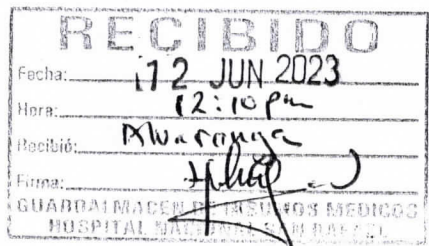 RECIBIDO
Fecha: 12 JUN 2023
Hora: 12:10 pm
Recibió:
Firma:
GUARDALMACEN DE INSUMOS MEDICOS
HOSPITAL NACIONAL SAN RAFAEL